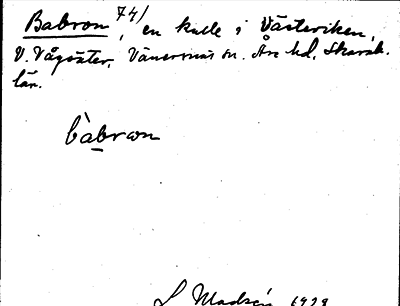 Babron 74/, en kulle i Västeviken,
V. Vågsäter, Vänersnäs sn. Åse hd, Skarab.
län.
bàbrωn
L Madsén 1928